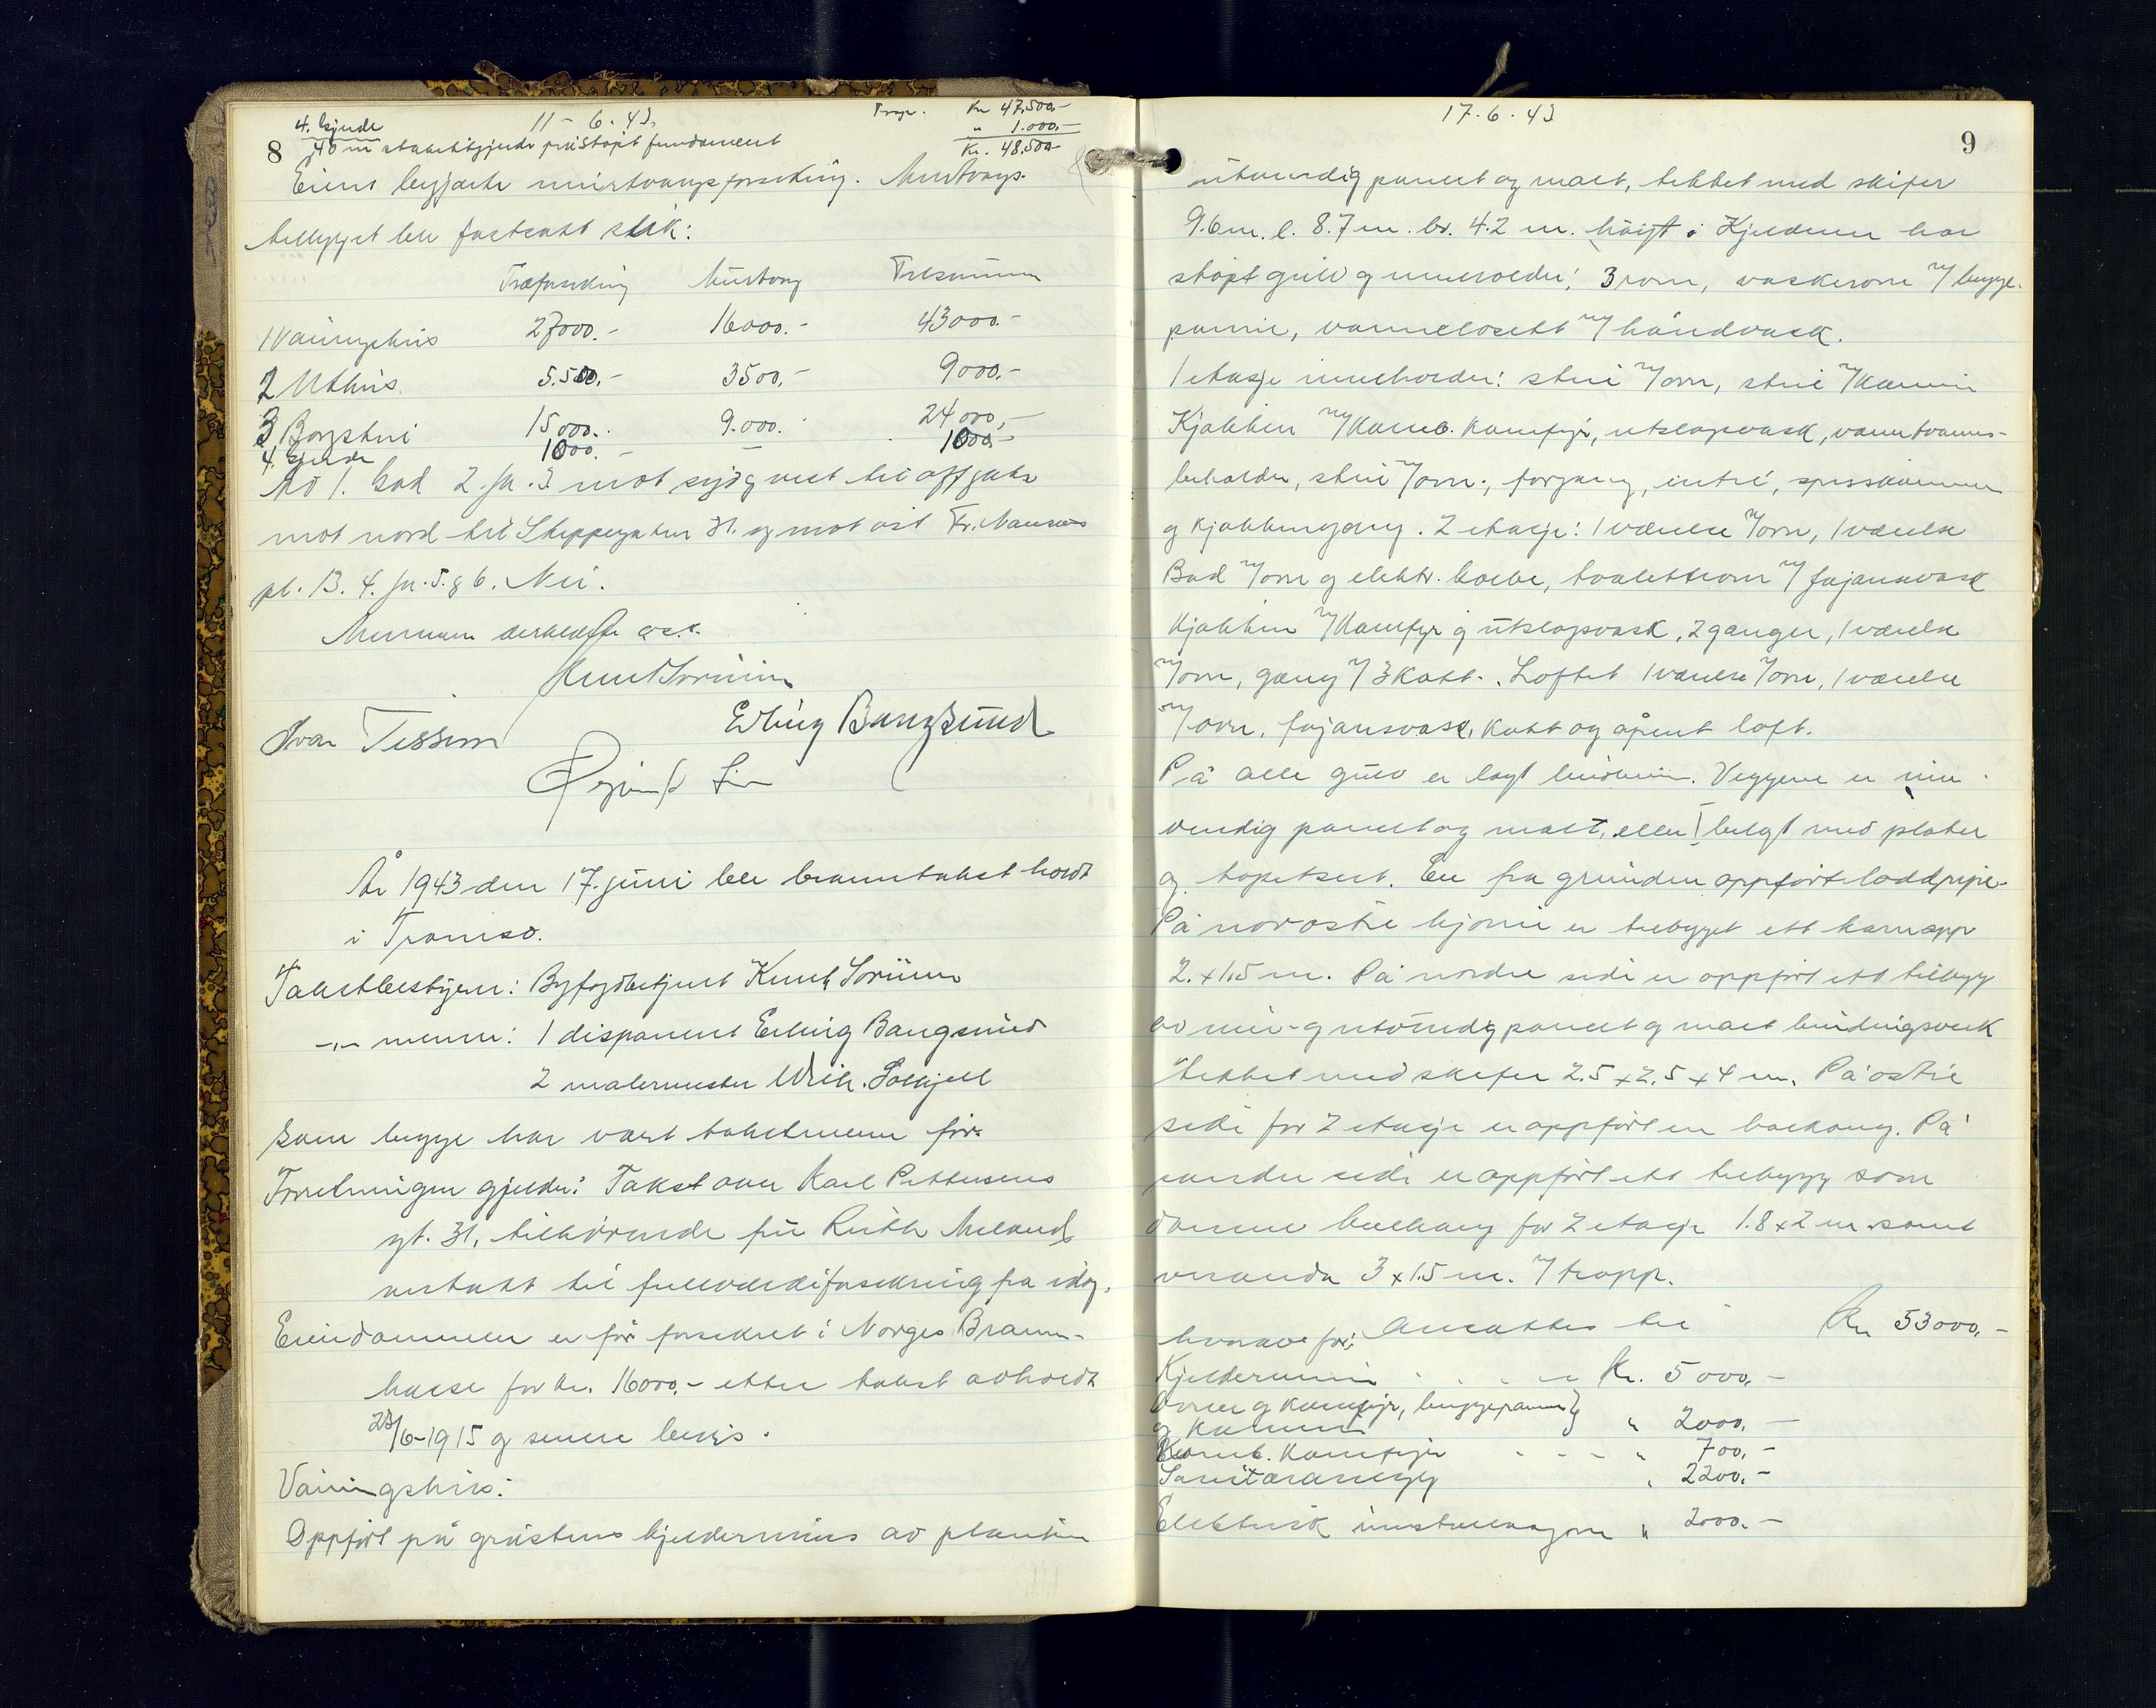 11-6-43.
Kr 47.500.-
4. Gjerde
" 1.000.-
8
40 m stakittgjerde på støpt fundament
Kr. 48.500.-
Eieren begjærte murtvangsforsikring. Murtvangs-
tillegget ble fastsatt slik:
Murtvang Totalsummen
1 Våningshus 27000.- 16000.- 43000.-
2 Uthus. 5.500.- 3500.- 9000.-
3 15000.- 9.000.- 24000.-
4. Gjerde 1000.- — 1000.-
Ad 1. 2. 3. mot syd og vest til off. gate
mot nord til Skippergaten 31. og mot øst Fr. Nansens
pl. 13. 4. 5. & 6. Nei.
Knut Sørum
Ivar Tessem
Erling Bangsund
År 1943 den 17. juni ble branntakst holdt
i Tromsø.
Takstbestyrer: Byfogdbetjent Knut Sørum
-"- menn: 1 disponent Erling Bangsund
2 malermester Wilh. Solhjell
som begge har vært takstmenn før.
Forretningen gjelder: Takst over Karl Pettersens
gt. 31, tilhørende fru Ruth Meland
antatt til fullverdiforsikring fra idag.
Eiendommen er før forsikret i Norges Brann-
kasse for kr. 16000.- etter takst avholdt
23/6-1915 og senere bevis.
Våningshus:
Oppført på gråstens kjeldermur av planker
17.6.43
9
utvendig panelt og malt, tekket med skifer
9.6 m. l. 8.7 m. br. 4.2 m. høigt. Kjelderen har
støpt gulv og inneholder: 3 rom, vaskerom m/ brygge-
panne, vannklosett m/ håndvask.
1 etasje inneholder: stue m/ovn, stue m/kamin
Kjøkken m/komb. komfyr, utslagsvask, varmtvanns-
beholder, stue m/ovn, forgang, entré, spisskammer
og kjøkkengang. 2 etasje: 1 værelse m/ovn, 1 værelse
Bad m/ovn og elektr. kolbe, toalettrom m/ fajansevask
Kjøkken m/Komfyr og utslagsvask, 2 ganger, 1 værelse
m/ovn, gang m/ 3 Kott. Loftet 1 værelse m/ovn, 1 værelse
m/ovn, fajansvask, Kott og åpent loft.
På alle gulv er lagt linoleum. Veggene er inn-
vendig panelt og malt, eller belgt med plater
og tapetsert. En fra grunden oppført loddpipe.
På nordøstre hjørne er tilbygget ett karnapp
2. x 1.5 m. På nordre side er oppført ett tilbygg
av inn- og utvendig panelt og malt bindingsverk
tekket med skifer 2.5 x 2.5 x 4 m. På østre
side for 2 etasje er oppført en balkong. På
søndre side er oppført ett tilbygg som
danner balkong for 2 etasje 1.8 x 2 m. samt
veranda 3 x 1.5 m. m/ trapp.
Ansattes til Kr 53000.-
hvorav for:
Kjeldermur . . . . Kr. 5000.-
Ovner og komfyr, bryggepanne }
og kamin } " 2000.-
Komb. Komfyr . . . " 700.-
Sanitæranlegg " 2200.-
Elektrisk installasjon " 2000.-